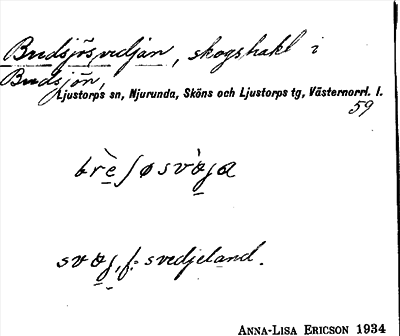 Budsjösvedjan, skogshakl i
Budsjön,
Ljustorps sn, Njurunda, Sköns och Ljustorps tg, Västernorrl. l.
59
svedjeland.
ANNA-LISA ERICSON 1934